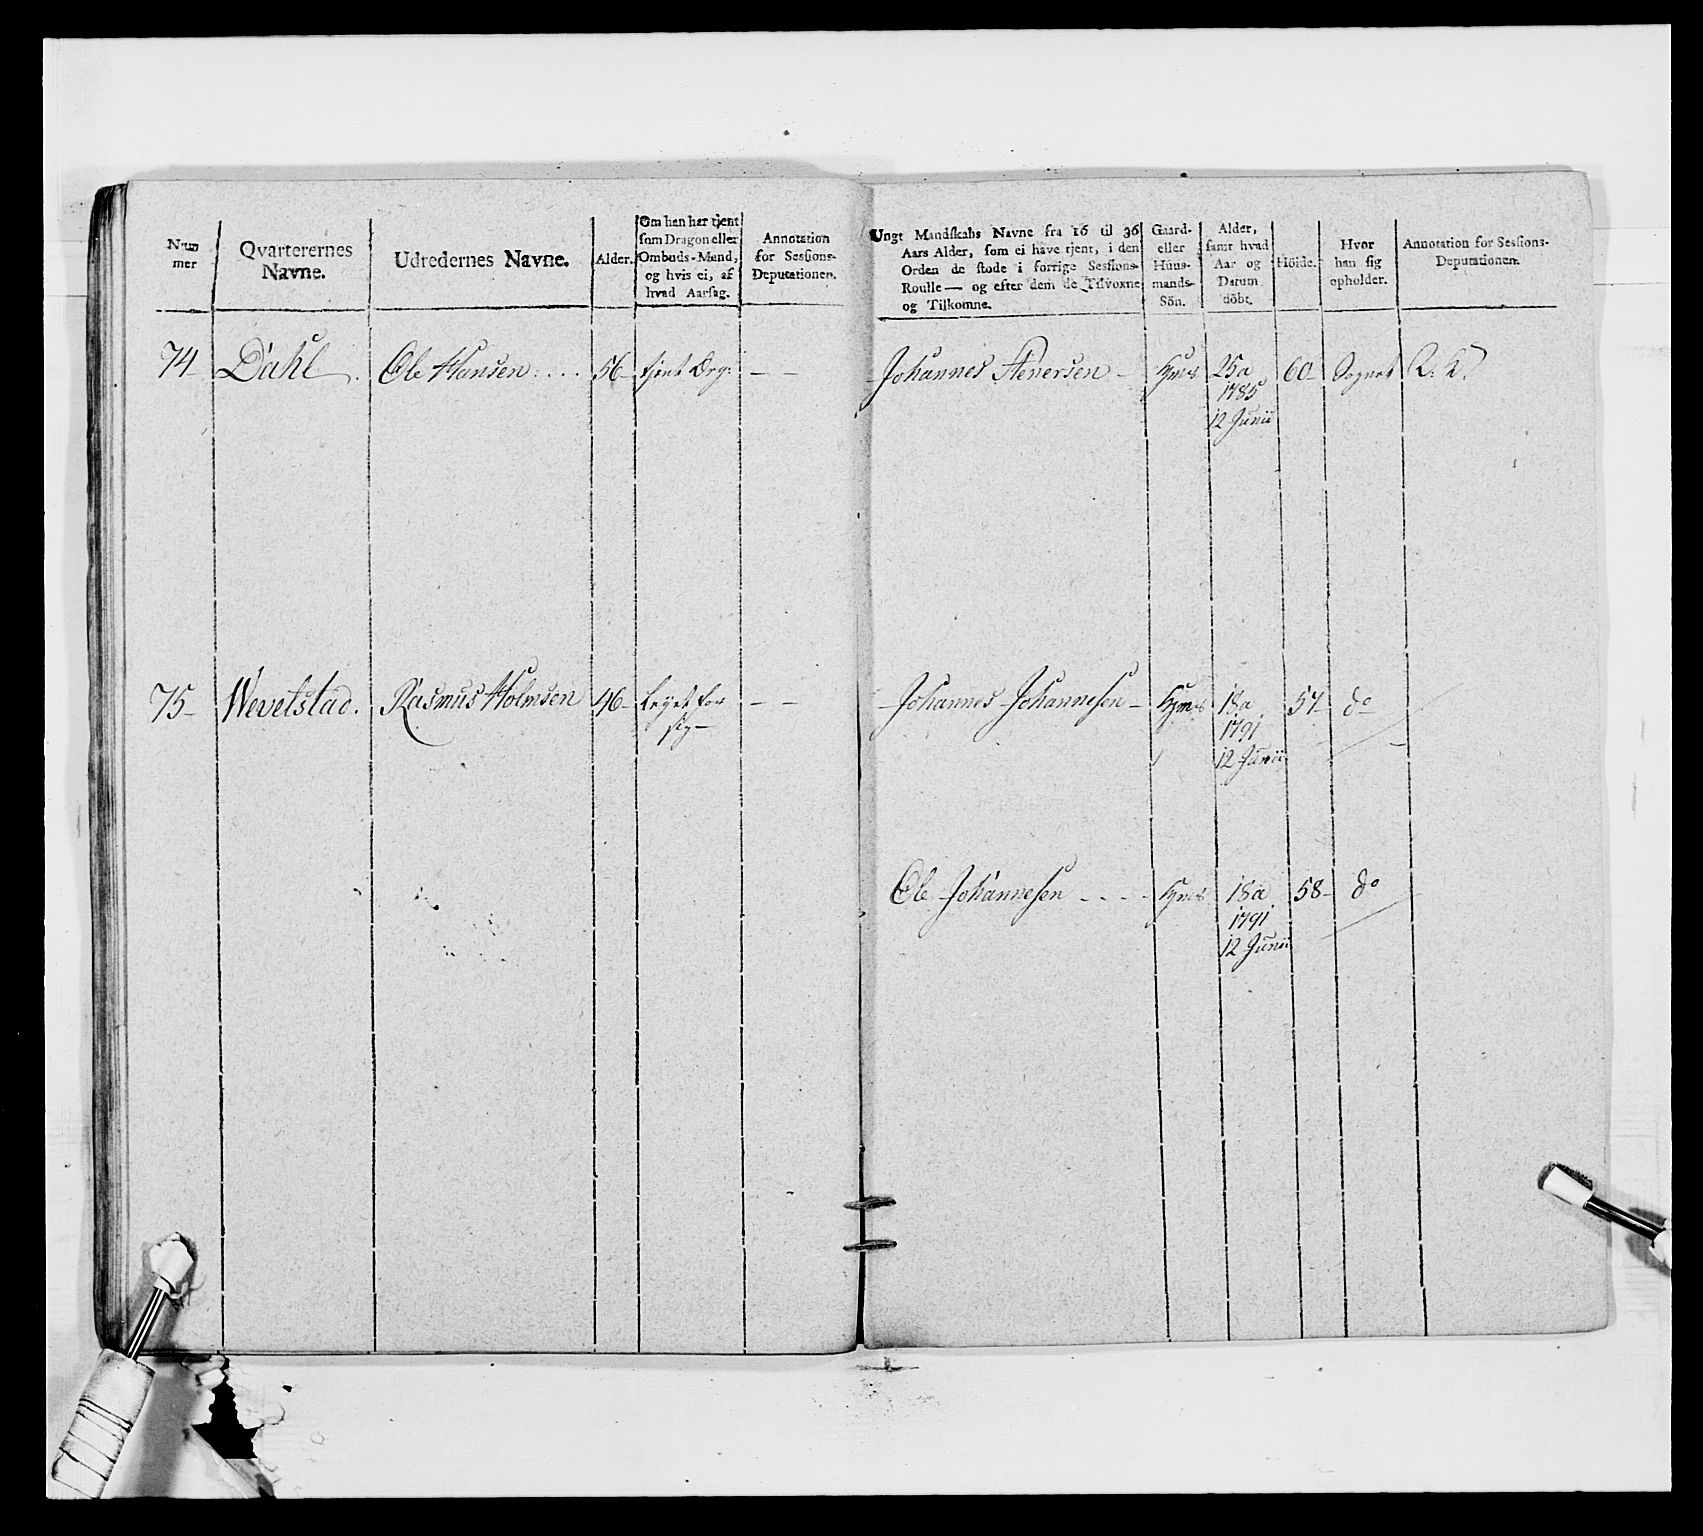 Num
mer
Qvarterernes
Navne.
Udredernes Navne.
Alder.
Om han har tjent
som Dragon eller
Ombuds-Mand,
og hvis ei, af
hvad Aarsag.
Annotation
for Sessions-
Deputationen.
Ungt Mandskabs Navne fra 16 til 36
Aars Alder, som ei have tjent, i den
Orden de stode i forrige Sessions-
Roulle — og efter dem de Tilvoxne
og Tilkomne.
Gaard-
eller
Huus-
mands-
Sön.
Alder,
samt hvad
Aar og
Datum
döbt.
Höide.
Hvor
han sig
opholder.
Annotation for Sessions-
Deputationen.
74 Dahl. Ole Hansen .... 56 - tjent Drg: - - Johannes Stenersen - 25a 60 - Sognet
1785
12 Junii
75 - Wevelstad. Rasmus Holmsen 46 - for - - Johannes Johannesen - 18a 57 - do
sig -
1791
12 Junii
Ole Johannesen - - - - 18a 58 - do
1791
12 Junii